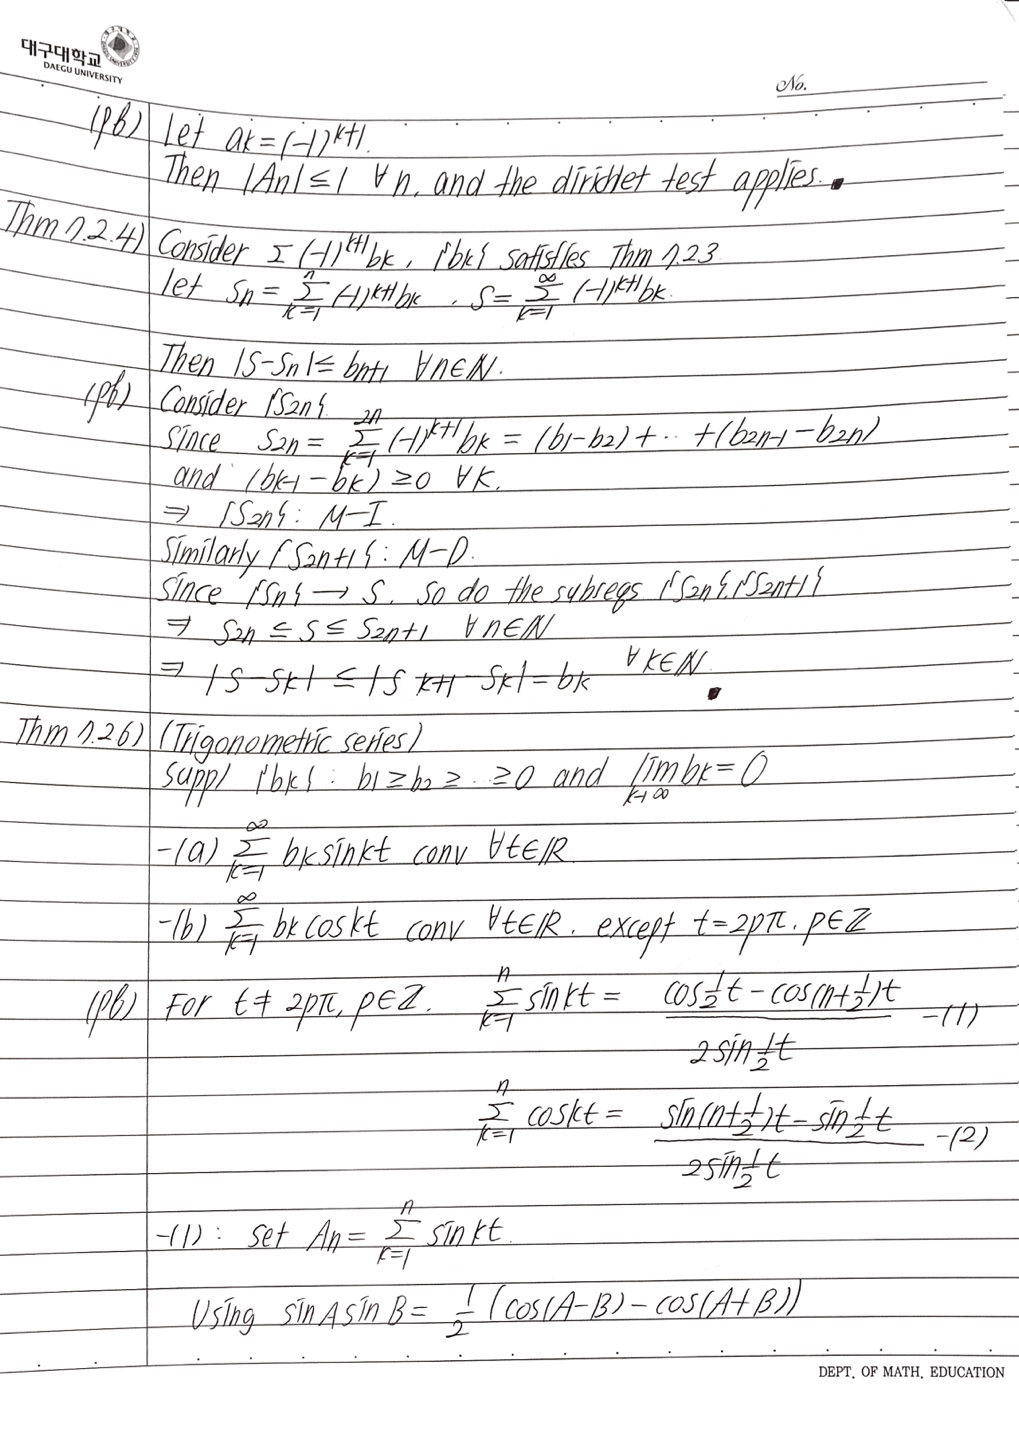 대구대학교
DAEGU UNIVERSITY
No.
(pf) Let ak = (-1)^k+1.
Then |An| ≤ 1 ∀n, and the dirichlet test applies. ▪
Thm 7.2.4) Consider Σ (-1)^k+1 bk, {bk} satisfies Thm 7.2.3
let Sn = Σ_{k=1}^{n} (-1)^k+1 bk, S = Σ_{k=1}^{∞} (-1)^k+1 bk.
Then |S-Sn| ≤ bn+1 ∀n∈ℕ.
(pf) Consider {S2n}.
Since S2n = Σ_{k=1}^{2n} (-1)^k+1 bk = (b1-b2) + ·· + (b2n-1 - b2n)
and (bk-1 - bk) ≥ 0 ∀k.
⇒ {S2n} : M-I.
Similarly {S2n+1} : M-D.
Since {Sn} → S. so do the subseqs {S2n}, {S2n+1}
⇒ S2n ≤ S ≤ S2n+1 ∀n∈ℕ
⇒ |S-Sk| ≤ |Sk+1 - Sk| = bk ∀k∈ℕ. ▪
Thm 7.2.6) (Trigonometric series)
Supp/ {bk} : b1 ≥ b2 ≥ ·· ≥ 0 and lim_{k→∞} bk = 0
-(a) Σ_{k=1}^{∞} bk sinkt conv ∀t∈ℝ
-(b) Σ_{k=1}^{∞} bk coskt conv ∀t∈ℝ. except t = 2pπ. p∈ℤ
(pf) For t ≠ 2pπ, p∈ℤ. Σ_{k=1}^{n} sinkt = (cos 1/2 t - cos(n+1/2)t) / (2 sin 1/2 t) -(1)
Σ_{k=1}^{n} coskt = (sin(n+1/2)t - sin 1/2 t) / (2 sin 1/2 t) -(2)
-(1) : set An = Σ_{k=1}^{n} sinkt.
Using sinA sinB = 1/2 (cos(A-B) - cos(A+B))
DEPT. OF MATH. EDUCATION